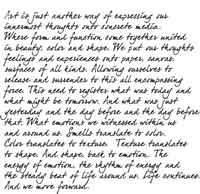 Art is just another way of expressing our
innermost thoughts onto concrete media.
Where form and function come together united
in beauty, color and shape. We put our thoughts
feelings and experiences onto paper, canvas,
surfaces of all kinds. Allowing ourselves to
release and surrender to this all encompassing
force. This need to register what was today and
what might be tomorrow. And what was just
yesterday and the day before and the day before
that. What emotion we witnessed within us
and around us. Smells translate to color.
Color translates to texture. Texture translates
to shape. And shape, back to emotion. The
energy of emotion, the rhythm of energy and
the steady beat of life around us. Life continues.
And we move forward.